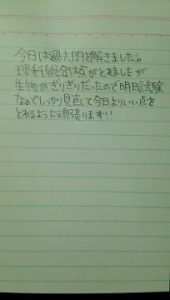 今日は過去問を解きました。
理科総合は点がとれましたが
生物がぎりぎりだったので明日試験
なのでしっかり見直して今日よりいい点を
とれるよう頑張ります!!